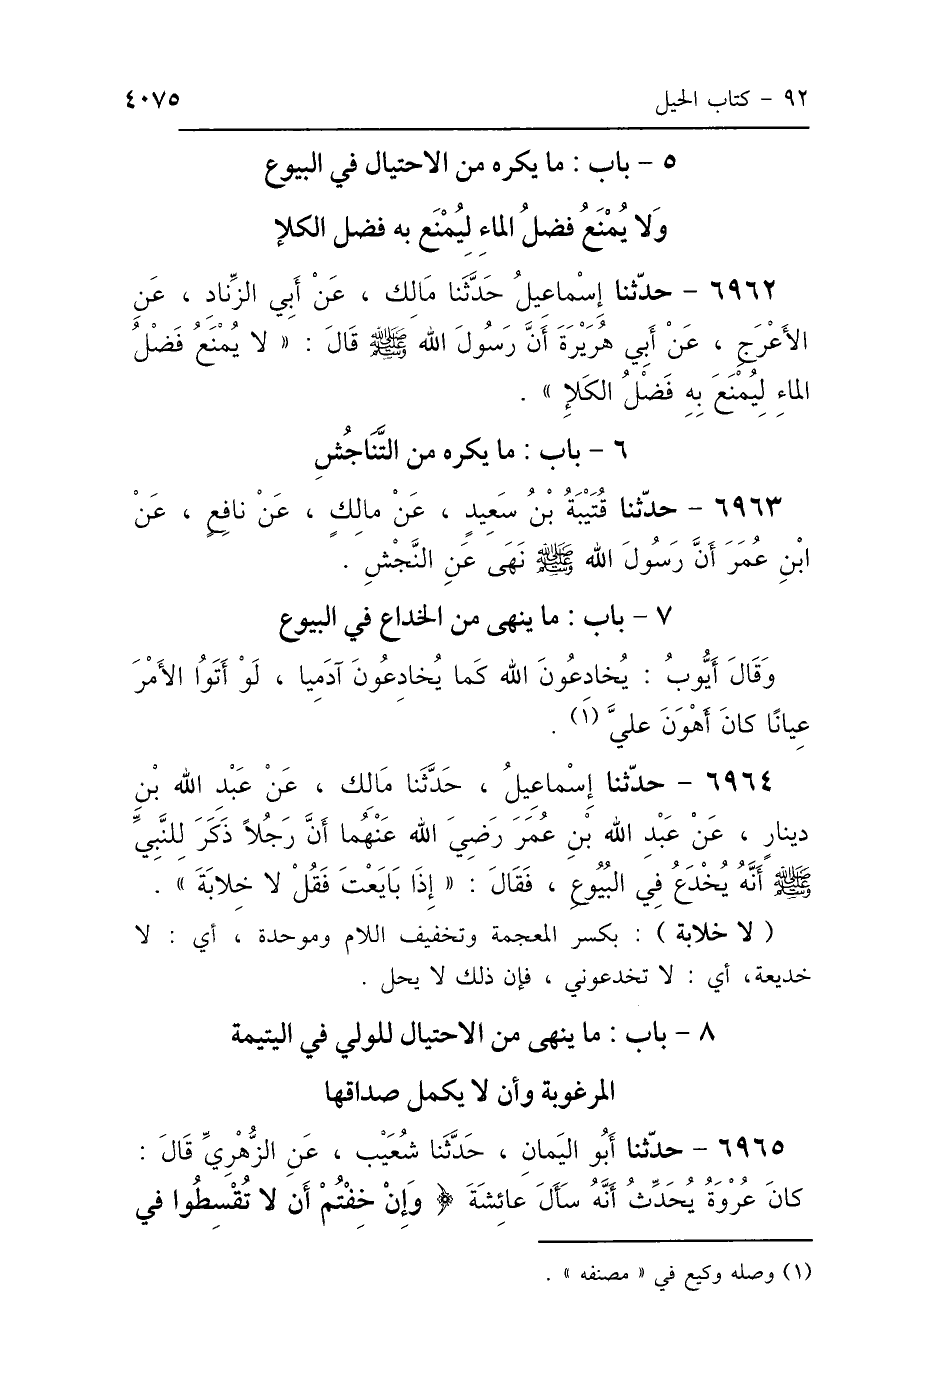 ٩٢ - كتاب الحيل ٤٠٧٥
٥ - باب : ما يكره من الاحتيال في البيوع
وَلا يُمْنَعُ فضلُ الماءِ لِيُمْنَع به فضل الكلإ
٦٩٦٢ - حدّثنا إِسْماعِيلُ حَدَّثَنا مَالِك ، عَنْ أَبي الزِّنادِ ، عَنِ
الأَعْرَجِ ، عَنْ أَبي هُرَيْرَةَ أَنَّ رَسُولَ الله ﷺ قَالَ : « لا يُمْنَعُ فَضْلُ
الماءِ لِيُمْنَعَ بِهِ فَضْلُ الكَلإِ » .
٦ - باب : ما يكره من التَّنَاجُشِ
٦٩٦٣ - حدّثنا قُتَيْبَةُ بْنُ سَعِيدٍ ، عَنْ مالِكٍ ، عَنْ نافِعٍ ، عَنْ
ابْنِ عُمَرَ أَنَّ رَسُولَ الله ﷺ نَهَى عَنِ النَّجْشِ .
٧ - باب : ما ينهى من الخداع في البيوع
وَقَالَ أَيُّوبُ : يُخادِعُونَ الله كَما يُخادِعُونَ آدَمِيا ، لَوْ أَتَوُا الأمْرَ
عِيانًا كانَ أَهْوَنَ عليَّ (١) .
٦٩٦٤ - حدّثنا إِسْماعِيلُ ، حَدَّثَنا مَالِك ، عَنْ عَبْدِ الله بْنِ
دينارٍ ، عَنْ عَبْدِ الله بْنِ عُمَرَ رَضِيَ الله عَنْهُما أَنَّ رَجُلاً ذَكَرَ لِلنَّبِيِّ
ﷺ أَنَّهُ يُخْدَعُ فِي البُيُوعِ ، فَقَالَ : « إِذَا بَايَعْتَ فَقُلْ لا خِلابَةَ » .
( لا خلابة ) : بكسر المعجمة وتخفيف اللام وموحدة ، أي : لا
خديعة، أي : لا تخدعوني ، فإن ذلك لا يحل .
٨ - باب : ما ينهى من الاحتيال للولي في اليتيمة
المرغوبة وأن لا يكمل صداقها
٦٩٦٥ - حدّثنا أَبُو اليَمانِ ، حَدَّثَنا شُعَيْب ، عَنِ الزُّهْرِيِّ قَالَ :
كانَ عُرْوَةُ يُحَدِّثُ أَنَّهُ سَأَلَ عائِشَةَ ﴿ وَإِنْ خِفْتُمْ أَن لا تُقْسِطُوا في
(١) وصله وكيع في « مصنفه » .